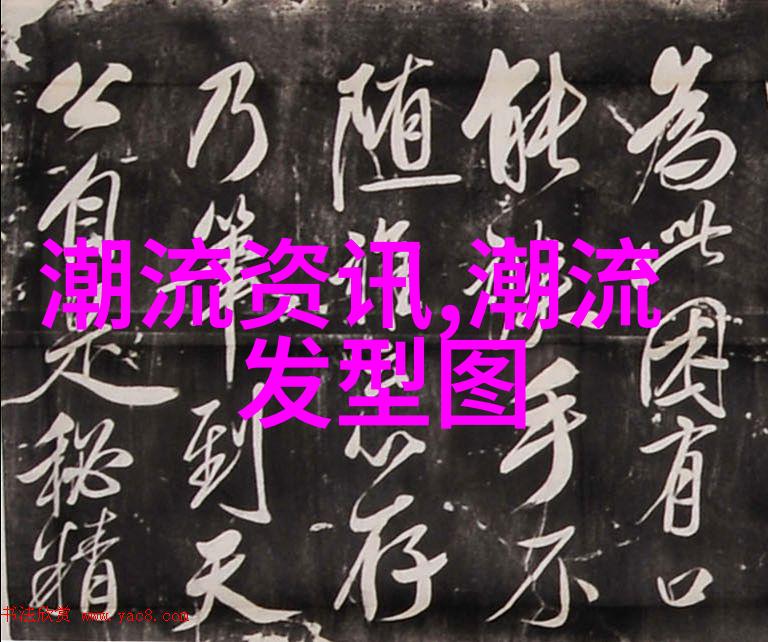 潮流资讯,潮流
发型图
為此因有口
能手不
随存
乃筆到天
公自是秘精
书法欣赏 www.yac8.com